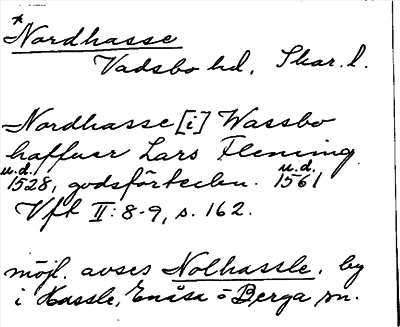 * Nordhasse
Vadsbo hd, Skar. l.
Nordhasse [i] Wassbo
haffuer Lars Flening
u.d. u.d.
1528, godsförteckn. 1561
Vft II: 8-9, s. 162.
möjl. avses Nolhassle, by
i Hassle, Enåsa o Berga sn.